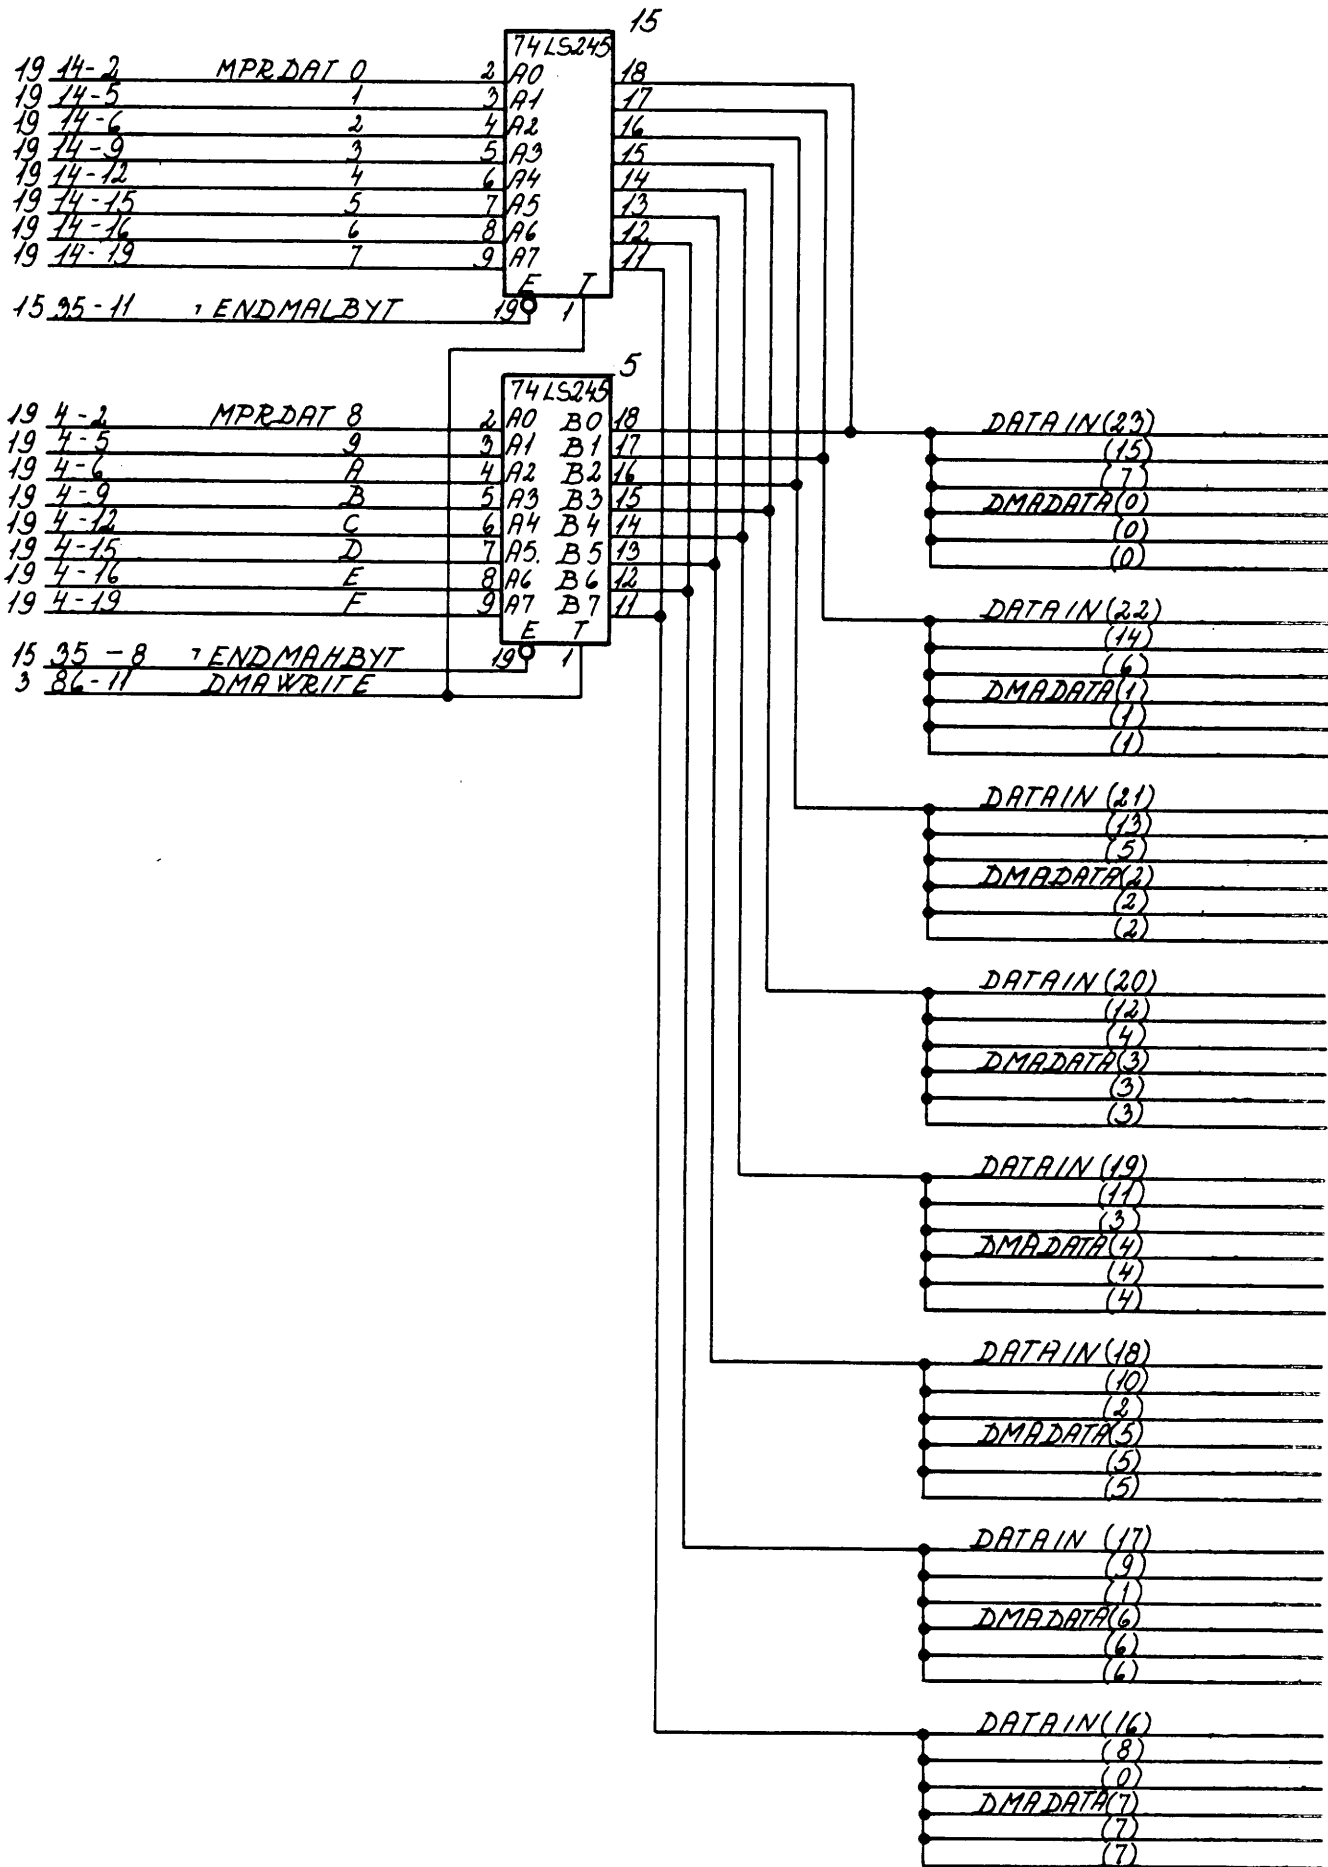 15
74LS245
19 14-2 MPRDAT 0 2 A0 18
19 14-5 1 3 A1 17
19 14-6 2 4 A2 16
19 14-9 3 5 A3 15
19 14-12 4 6 A4 14
19 14-15 5 7 A5 13
19 14-16 6 8 A6 12
19 14-19 7 9 A7 11
E T
15 35-11 ¬ENDMALBYT 19 1
5
74LS245
19 4-2 MPRDAT 8 2 A0 B0 18
19 4-5 9 3 A1 B1 17
19 4-6 A 4 A2 B2 16
19 4-9 B 5 A3 B3 15
19 4-12 C 6 A4 B4 14
19 4-15 D 7 A5. B5 13
19 4-16 E 8 A6 B6 12
19 4-19 F 9 A7 B7 11
E T
15 35-8 ¬ENDMAHBYT 19 1
3 86-11 DMAWRITE
DATAIN(23)
(15)
(7)
DMADATA(0)
(0)
(0)
DATAIN(22)
(14)
(6)
DMADATA(1)
(1)
(1)
DATAIN(21)
(13)
(5)
DMADATA(2)
(2)
(2)
DATAIN(20)
(12)
(4)
DMADATA(3)
(3)
(3)
DATAIN(19)
(11)
(3)
DMADATA(4)
(4)
(4)
DATAIN(18)
(10)
(2)
DMADATA(5)
(5)
(5)
DATAIN (17)
(9)
(1)
DMADATA(6)
(6)
(6)
DATAIN(16)
(8)
(0)
DMADATA(7)
(7)
(7)